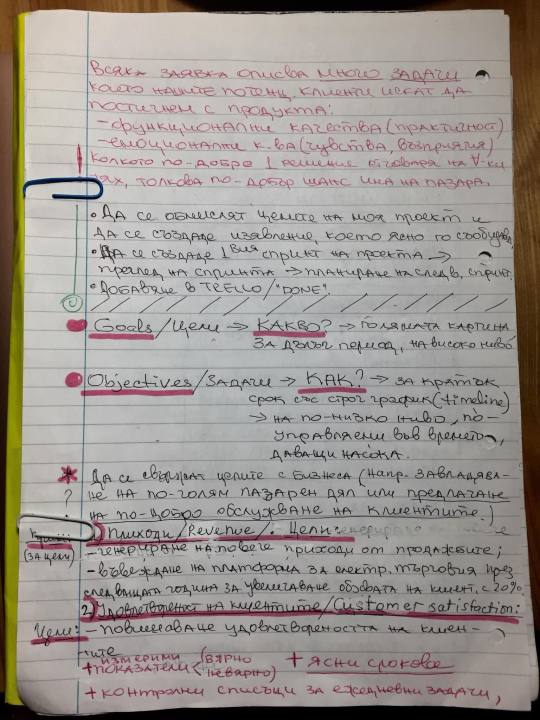 Всяка заявка описва много задачи
които нашите потенц. клиенти искат да
постигнем с продукта:
- функционални качества (практичност)
- емоционални к-ва (чувства, възприятия)
! колкото по-добре 1 решение отговаря на ∀-ки
тях, толкова по-добър шанс има на пазара.
• Да се обмислят целите на моя проект и
да се създаде изявление, което ясно го съобщава,
• Да се създаде 1вия спринт на проекта →
преглед на спринта → планиране на след в. спринт.
• Добавяне в TRELLO / "DONE".
Goals / Цели → КАКВО? → голямата картина
за дълъг период, на високо ниво
Objectives / Задачи → КАК? → за кратък
срок със строг график (timeline)
→ на по-низко ниво, по-
управляеми във времето,
даващи насока.
* Да се свържат целите с бизнеса (напр. завладява-
? не на по-голям пазарен дял или предлагане
! на по-добро обслужване на клиентите.)
1) Приходи / Revenue / : Цели:
(за цели) - генериране на повече приходи от продажбите;
- въвеждане на платформа за електр. търговия през
следващата година за увеличаване на клиент. с 20%.
2) Удовлетвореност на клиентите / Customer satisfaction:
Цели: - повишаване удовлетвореността на клиен-
тите
+ измерими показатели < (вярно невярно) + ясни срокове
+ контролни списъци за ежедневни задачи,